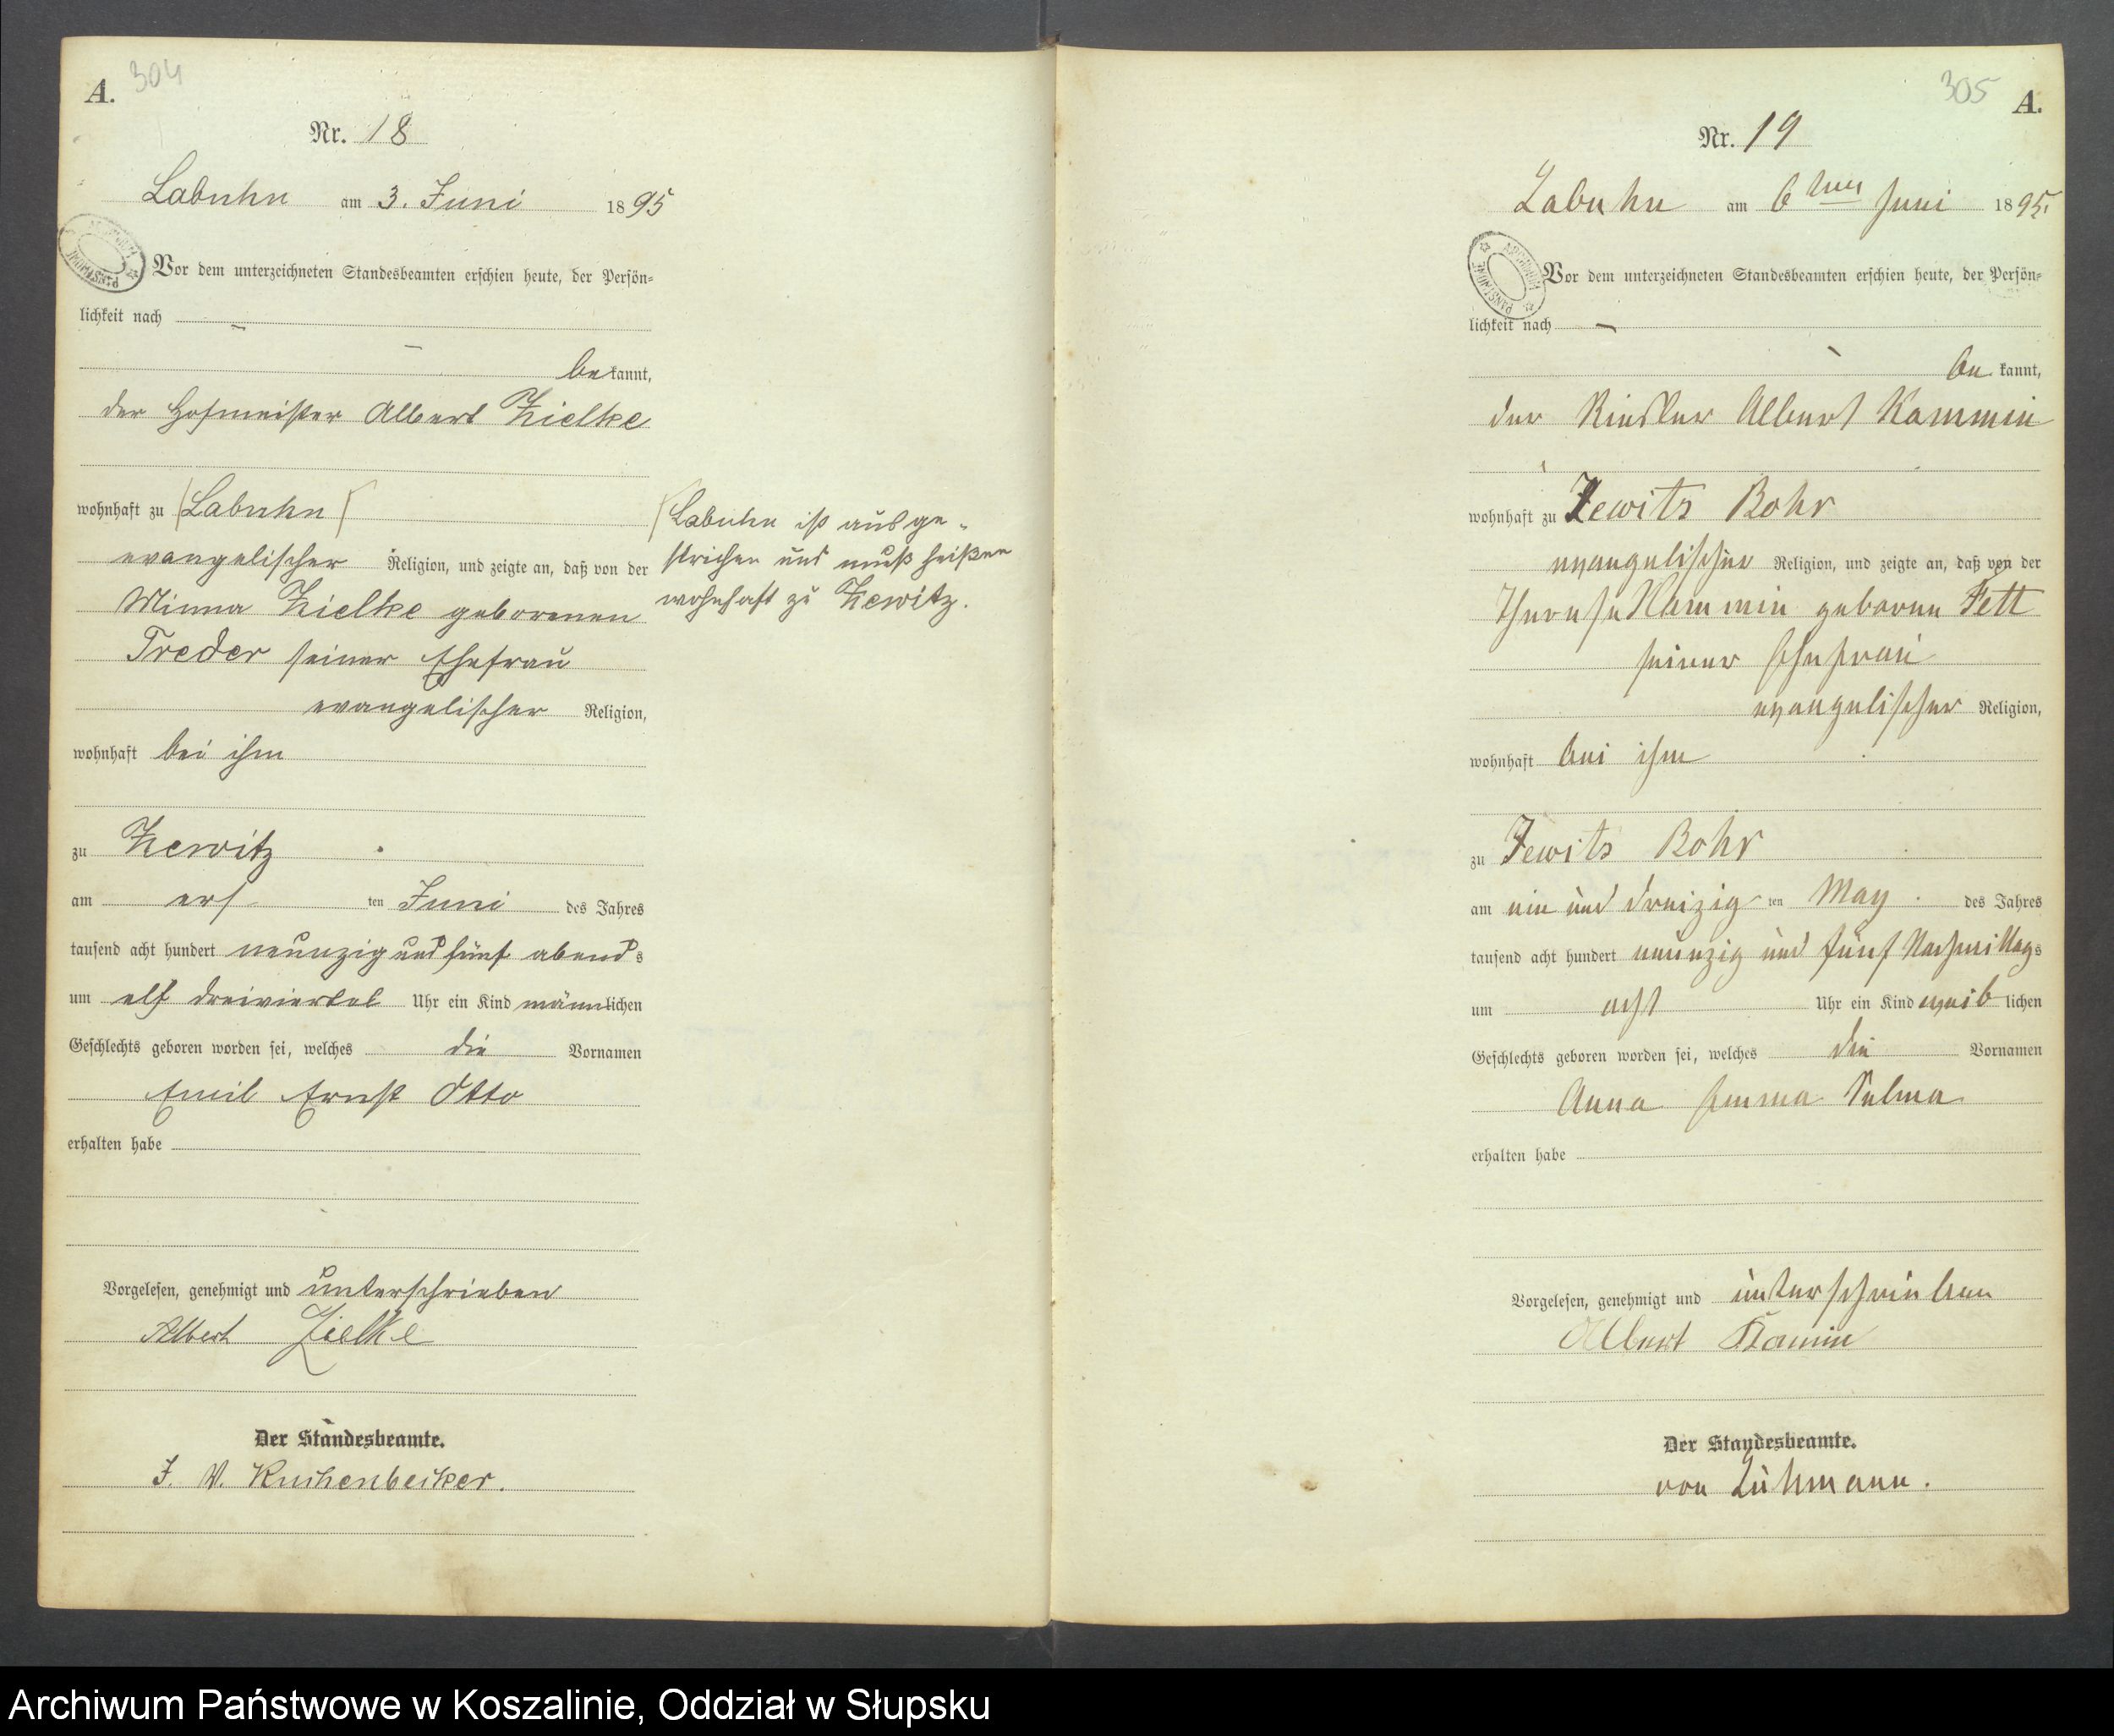 A. 304
Nr. 18
Labuhn am 3. Juni 1895
Vor dem unterzeichneten Standesbeamten erschien heute, der Persön=
lichkeit nach –
– bekannt,
der Hofmeister Albert Zielke
wohnhaft zu (Labuhn)
evangelischer Religion, und zeigte an, daß von der
Minna Zielke geborenen
Treder seiner Ehefrau
evangelischer Religion,
wohnhaft bei ihm
zu Zewitz
am ers- ten Juni des Jahres
tausend acht hundert neunzig und fünf abends
um elf dreiviertel Uhr ein Kind männlichen
Geschlechts geboren worden sei, welches die Vornamen
Emil Ernst Otto
erhalten habe
Vorgelesen, genehmigt und unterschrieben
Albert Zielke
Der Standesbeamte.
J. W. Kuchenbecker.
(Labuhn ist ausge-
strichen und muß heißen
wohnhaft zu Zewitz.
ARCHIWUM PAŃSTWOWE
305 A.
Nr. 19
Labuhn am 6ten Juni 1895.
Vor dem unterzeichneten Standesbeamten erschien heute, der Persön=
lichkeit nach –
bekannt,
der Albert Kammin
wohnhaft zu Zewits Bohr
evangelischer Religion, und zeigte an, daß von der
Therese Kammin geborne Fett
seiner Ehefrau
evangelischer Religion,
wohnhaft bei ihm
zu Zewits Bohr
am ein und dreizig ten May des Jahres
tausend acht hundert neunzig und fünf Nachmittags
um acht Uhr ein Kind weiblichen
Geschlechts geboren worden sei, welches die Vornamen
Anna Emma Selma
erhalten habe
Vorgelesen, genehmigt und unterschrieben
Albert Kamin
Der Standesbeamte.
von Lühmann.
ARCHIWUM PAŃSTWOWE
Archiwum Państwowe w Koszalinie, Oddział w Słupsku